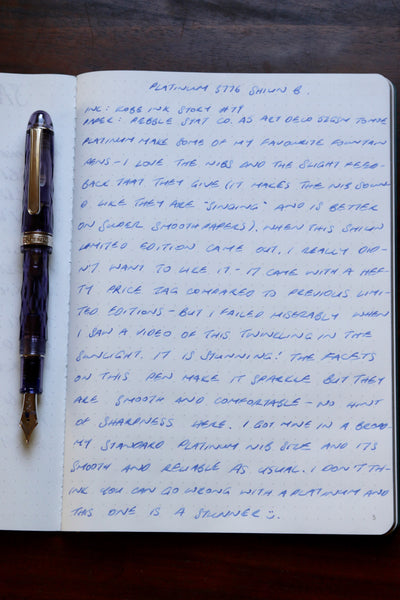 PLATINUM 3776 SHIUN B.
INK: KOBE INK STORY #79
PAPER: PEBBLE STAT CO. A5 ART DECO 52GSM TOMOE
PLATINUM MAKE SOME OF MY FAVOURITE FOUNTAIN
PENS - I LOVE THE NIBS AND THE SLIGHT FEED-
BACK THAT THEY GIVE (IT MAKES THE NIB SOUN-
D LIKE THEY ARE "SINGING" AND IS BETTER
ON SUPER SMOOTH PAPERS). WHEN THIS SHIUN
LIMITED EDITION CAME OUT, I REALLY DID-
N'T WANT TO LIKE IT - IT CAME WITH A HEF-
TY PRICE TAG COMPARED TO PREVIOUS LIMI-
TED EDITIONS - BUT I FAILED MISERABLY WHEN
I SAW A VIDEO OF THIS TWINKLING IN THE
SUNLIGHT. IT IS STUNNING! THE FACETS
ON THIS PEN MAKE IT SPARKLE BUT THEY
ARE SMOOTH AND COMFORTABLE - NO HINT
OF SHARPNESS HERE. I GOT MINE IN A BROAD -
MY STANDARD PLATINUM NIB SIZE AND ITS
SMOOTH AND RELIABLE AS USUAL. I DON'T TH-
INK YOU CAN GO WRONG WITH A PLATINUM AND
THIS ONE IS A STUNNER :).